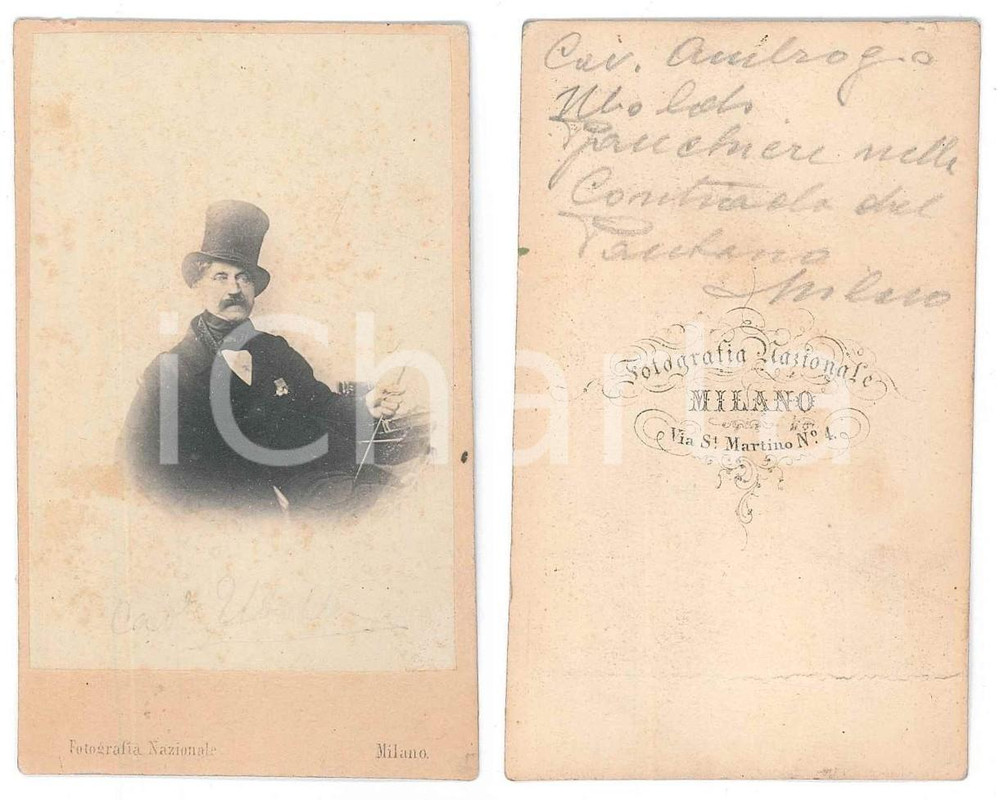 Cav. Uboldi
Fotografia Nazionale
Milano.
Cav. Ambrogio
Uboldi
Banchiere nella
Contrada del
Pantano
Milano
Fotografia Nazionale
MILANO
Via St Martino No. 4.
iCharta